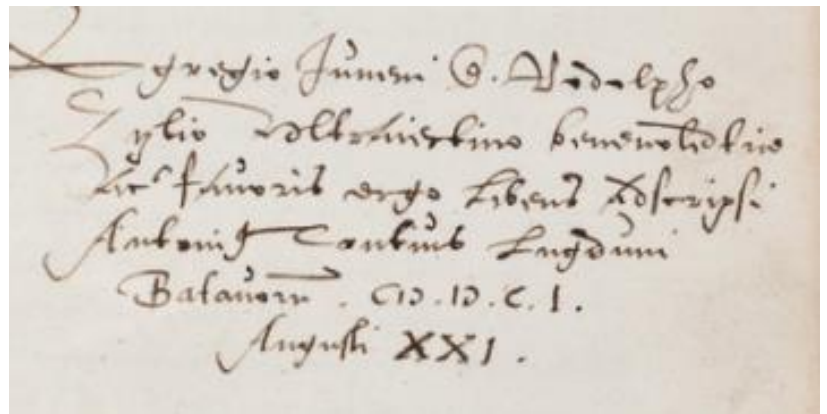 Egregio Juveni D. Rodolpho
Zylio Ultraiectino benevolentiae
ac favoris ergo Libens Adscripsi
Antonius Lugduni
Batavorum . CIↃ.IↃ.C.I.
Augusti XXI.